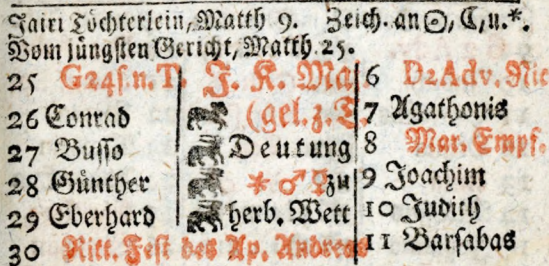 Jairi Töchterlein, Matth 9. Zeich. an ☉, ☾, u. *.
Vom jüngsten Gericht, Matth. 25.
25 G24 s. n. T. J. K. Maj 6 D2 Adv. Nic
26 Conrad (gel. z. T. 7 Agathonis
27 Busso Deutung 8 Mar. Empf.
28 Günther * ♂ ☿ zu 9 Joachim
29 Eberhard herb. Wett 10 Judith
30 Ritt. Fest des Ap. Andreas 11 Barsabas